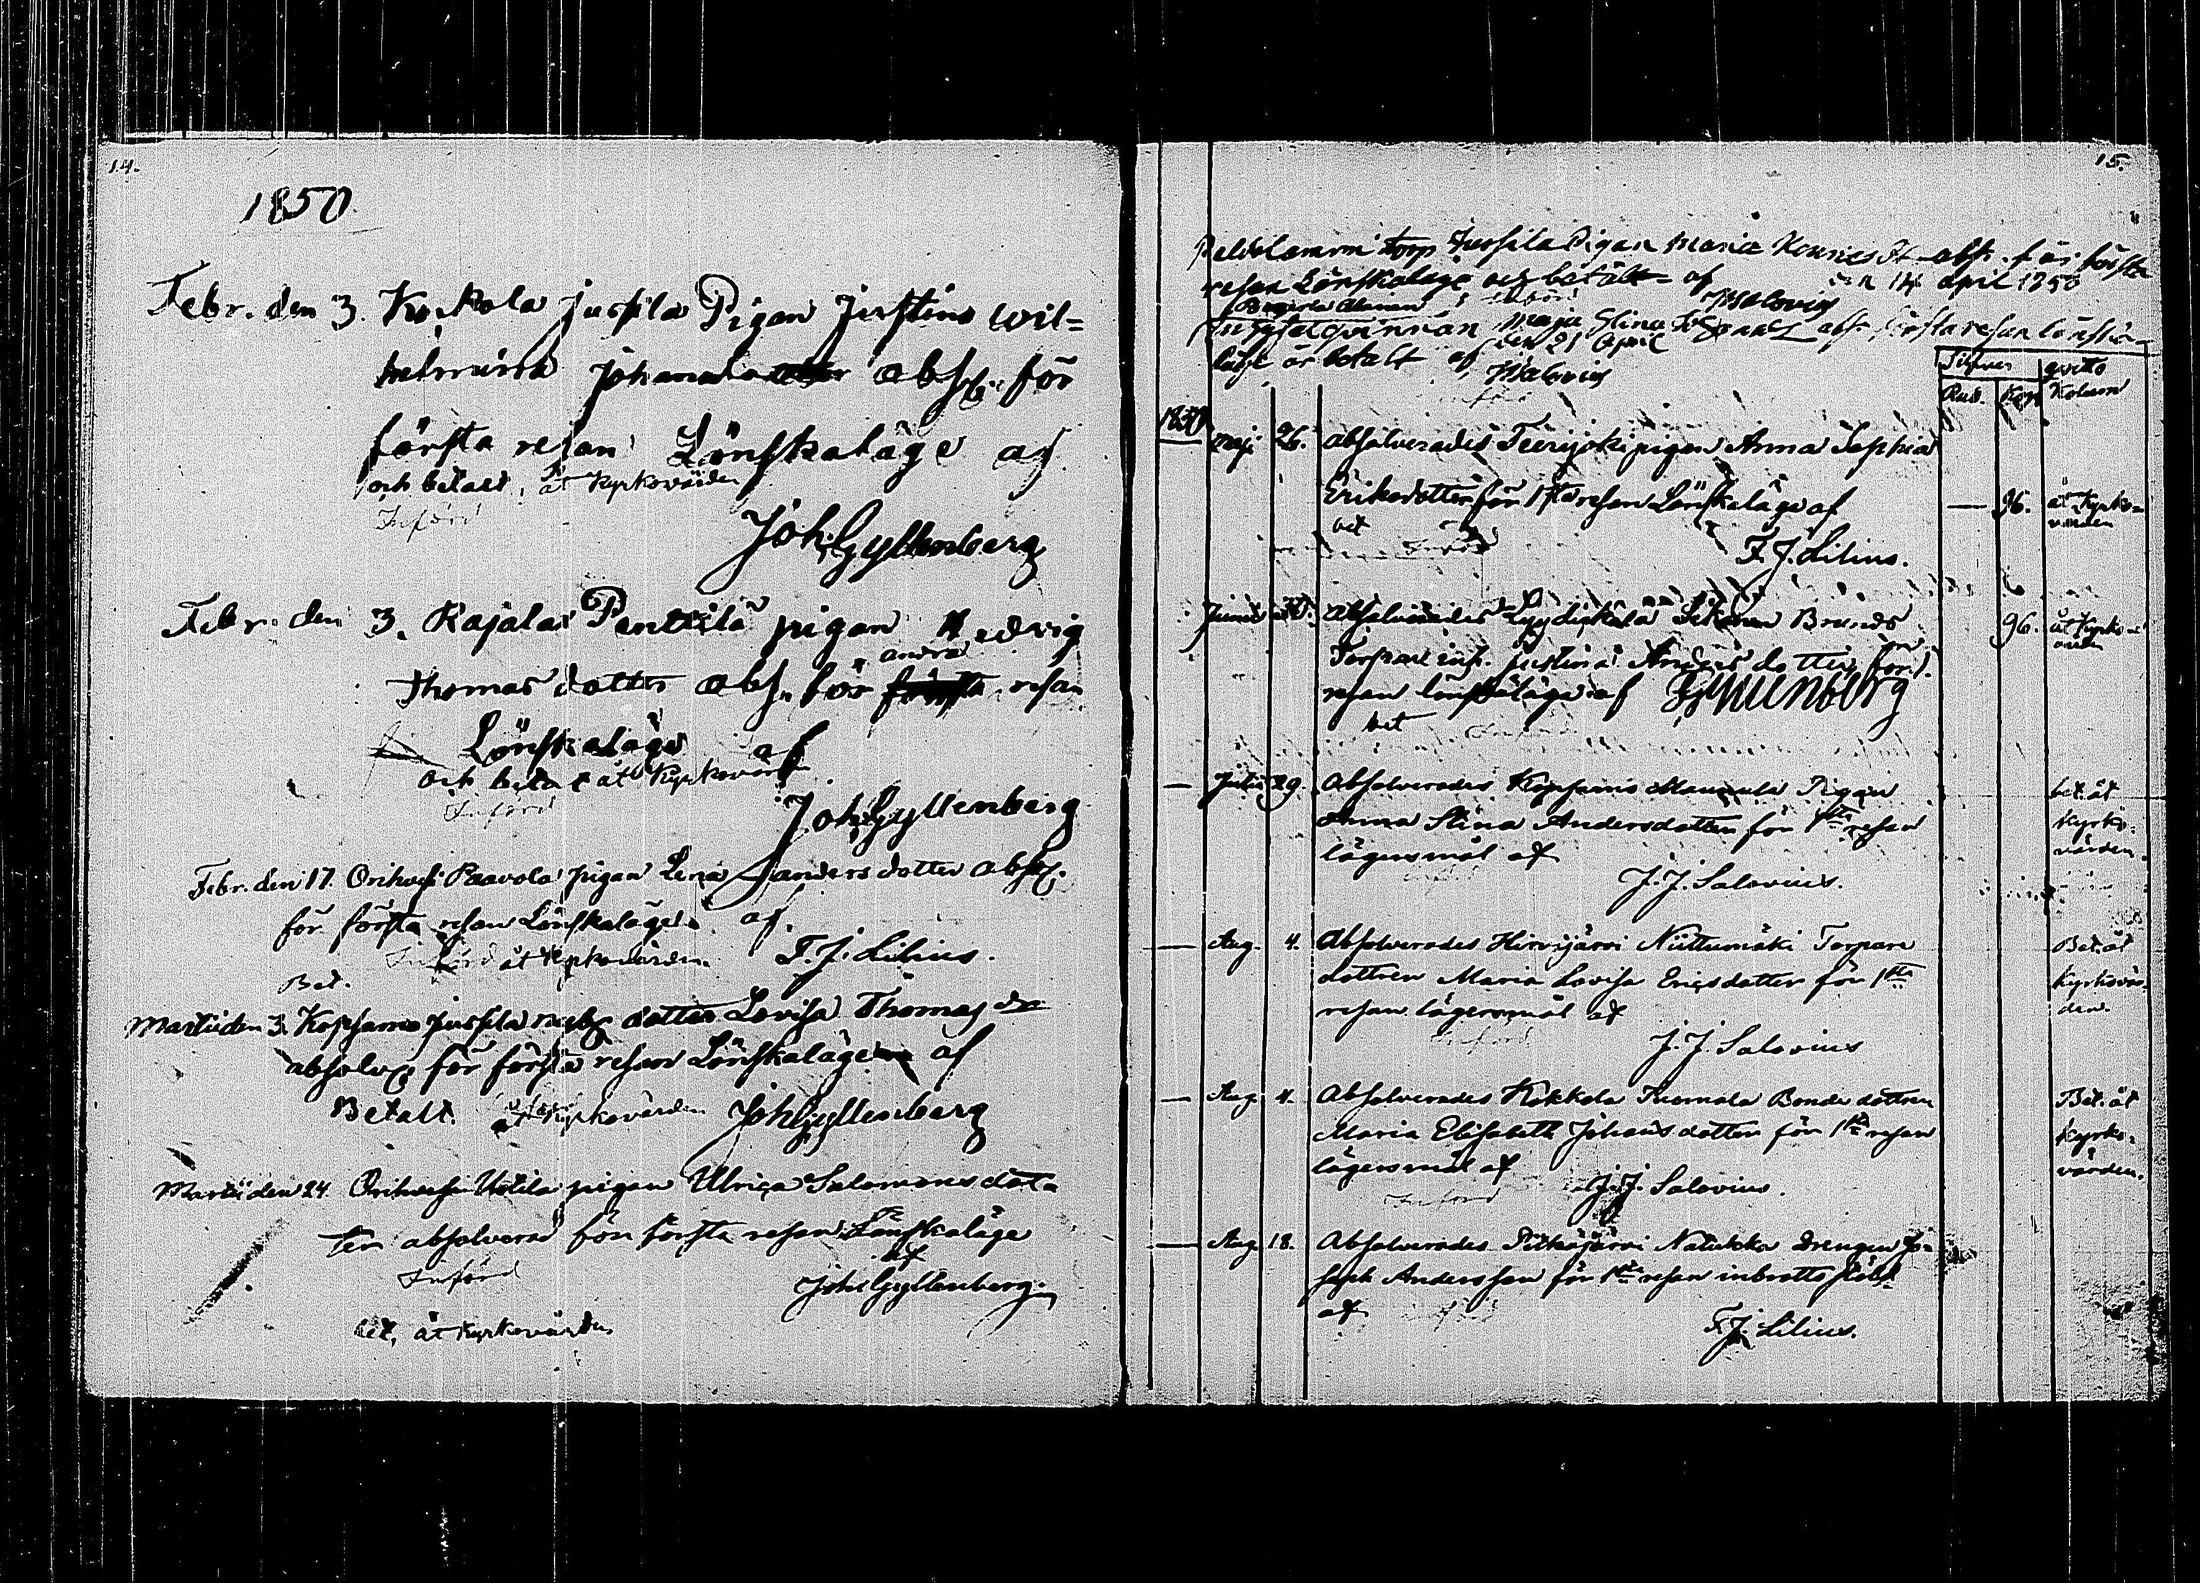 14.
1850
Febr. den 3. Kockola Jussila Pigan Justina Wil=
helmina Johansdotter abs. för
första resan Lönskaläge af
och betalt, åt Kyrkovärden
Införd
Joh. Gyllenberg
Febr. den 3. Rajala Penttilä pigan Hedvig
andra
Thomas dotter abs. för första resan
Lönskaläge af
och betalt åt Kyrkovärd
Införd
Joh. Gyllenberg
Febr. den 17. Orihvesi Paavola pigan Lena Anders dotter abs.
för första resan Lönskaläge af
Införd åt Kyrkovärden. F. J. Lilius.
Bet.
Martii den 3. Kopsamo Jussila dotter Lovisa Thomas
absolv för första resan Lönskaläge af
Betalt. åt Kyrkovärden Joh Gyllenberg
Martii den 24. Orihvesi Uotila pigan Ulrica Salomonsdot
ter absolverad för första resan Lönskaläge
af
Införd
Joh. Gyllenberg.
bet, åt Kyrkovärden
15.
torp Jussila Pigan Maria abs. för första
resan Lönskaläge och betalt af den 14 april 1850
Införd JSalovius
Maja Stina abs. första resan lönska
den 21 April
läge är betalt af JSalovius
qvitto
Rub. Kop Kolumn
1850
maj 26. absolverades Teerijoki pigan Anna Sophia
Eriksdotter för 1sta resan Lönskaläge af — 96. åt Kyrko=
värden
bet
Införd F. J. Lilius.
Junii 30. Absolverades Brunds 96. åt Kyrko
Torpare inh. Justina Anders dotter för 1
resan lönskaläge af Gyllenberg
bet Införd
— Julii 29. Absolverades Kopsamo Mannula Pigan bet. åt
Anna Stina Andersdotter för 1sta resan kyrko=
lägersmål af värden.
J. J. Salovius.
— Aug. 4. Absolverades Hirvijärvi Niittumäki Torpare Bet. åt
dottren Maria Lovisa Ericsdotter för 1sta kyrkovär=
resan lägersmål af den.
Införd J. J. Salovius
— Aug. 4. Absolverades Kokkola Tuomola Bonde dottren Bet. åt
Maria Elisabeth Johansdotter för 1sta resan kyrko=
lägersmål af värden.
Införd J. J. Salovius.
— Aug. 18. Absolverades Pitkäjärvi Natukka drengen Jo=
seph Andersson för 1sta resan inbrottsstöld
af
F. J. Lilius.